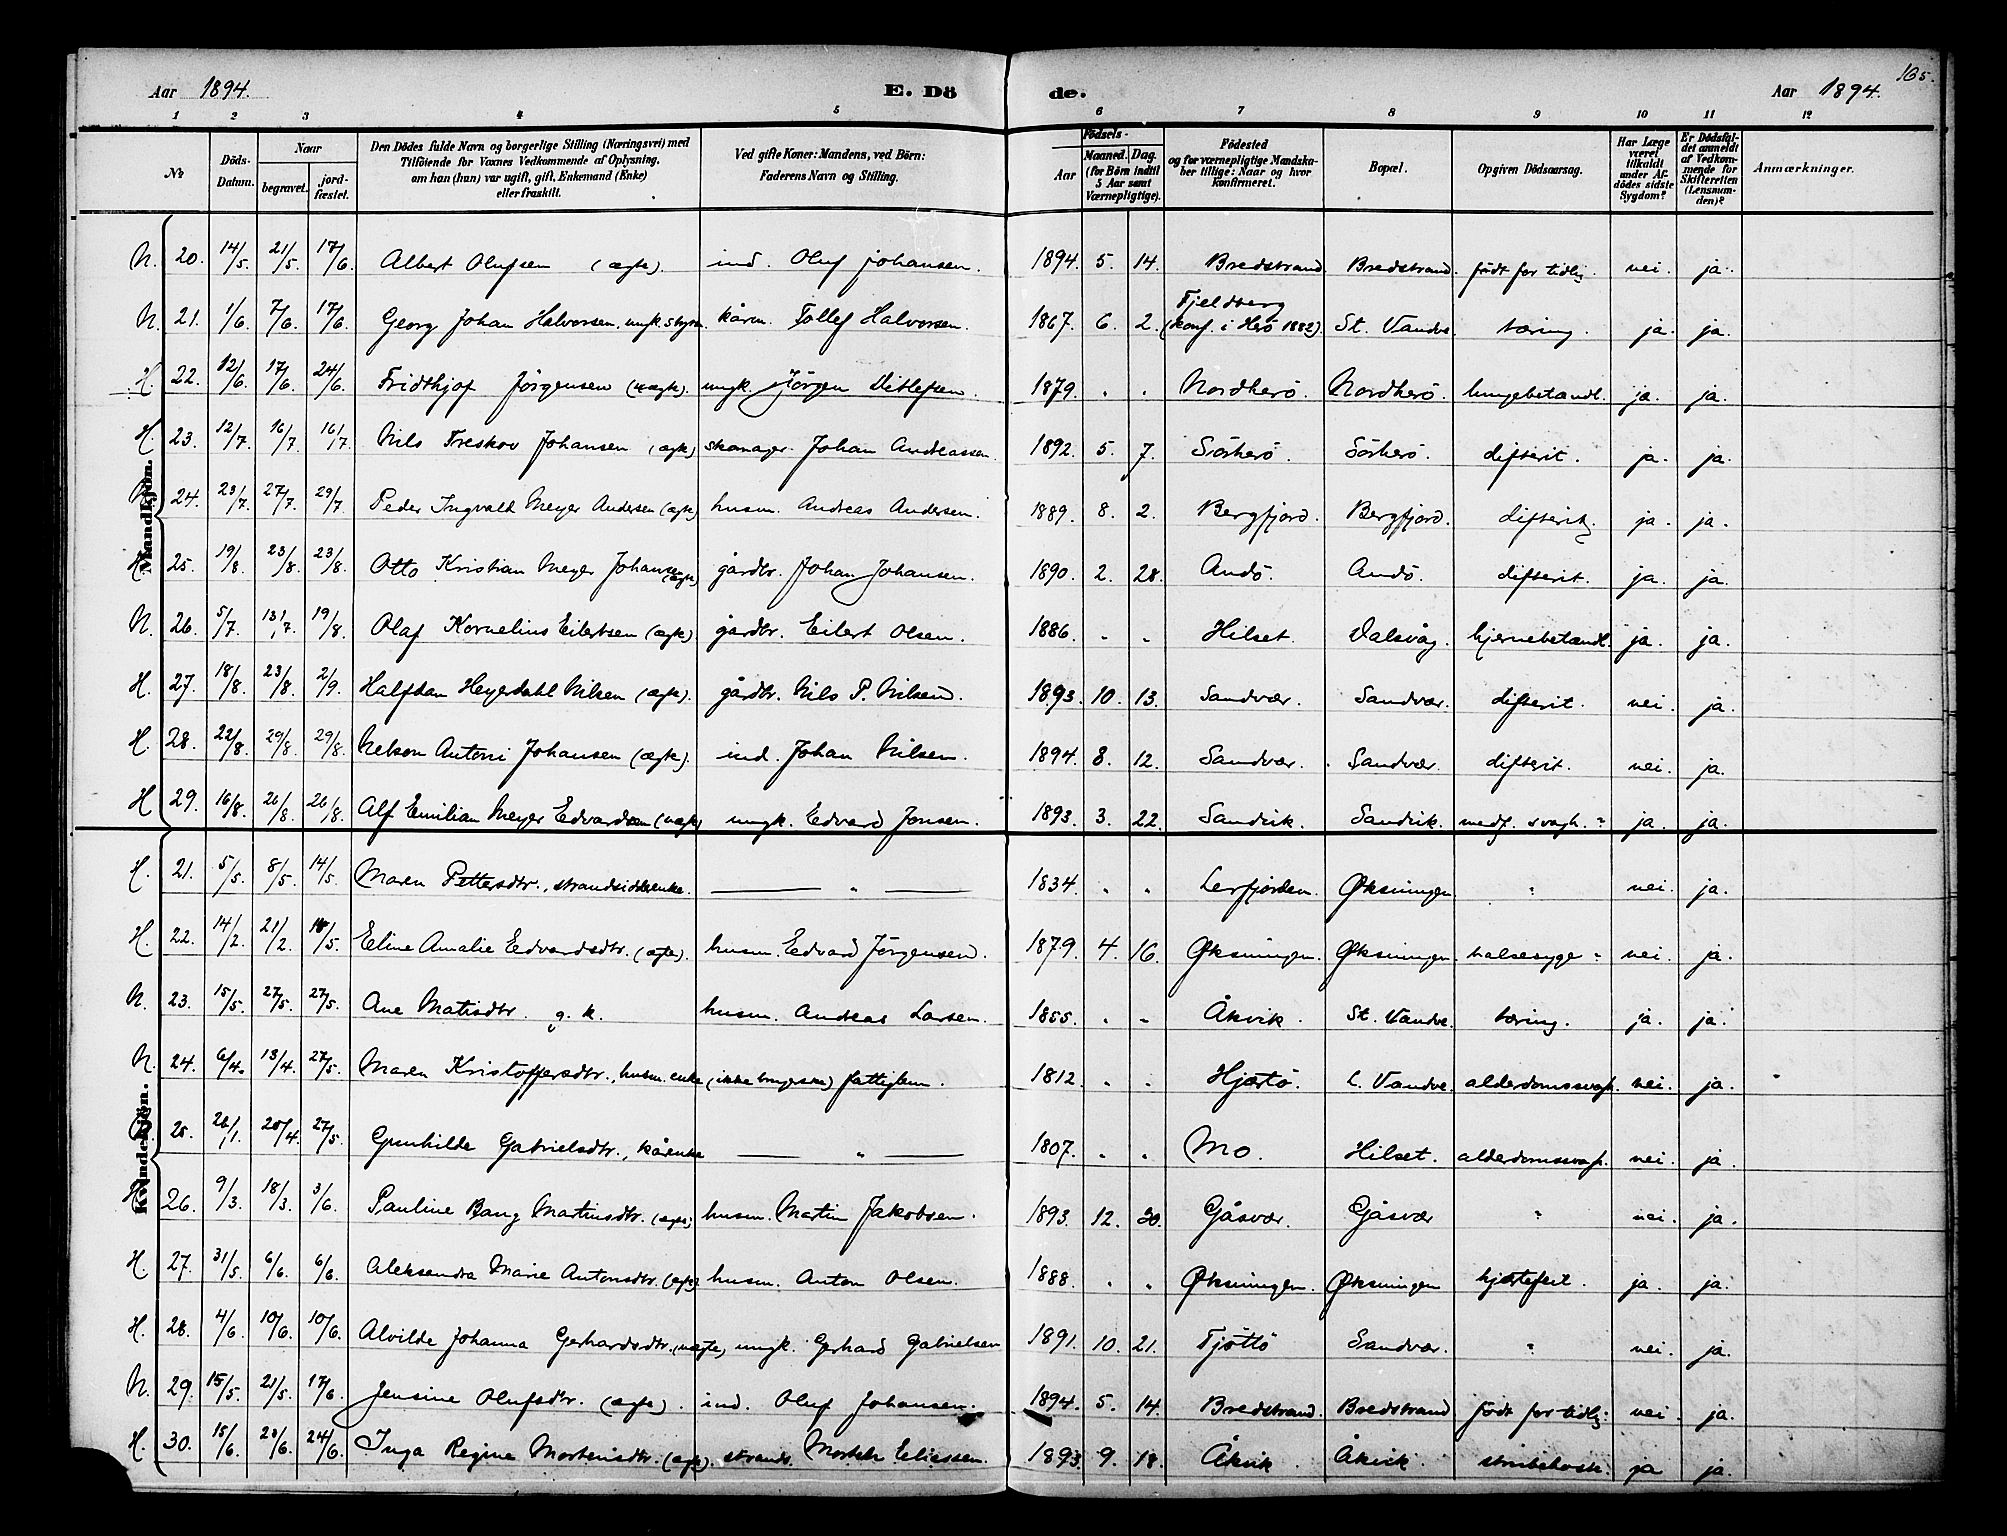 165.
Aar 1894.
E. Döde.
Aar 1894.
1 2 3 4 5 6 7 8 9 10 11 12
No
Döds-Datum.
Naar
begravet.
jord-fæstet.
Den Dödes fulde Navn og borgerlige Stilling (Næringsvei) med
Tilföiende for Voxnes Vedkommende af Oplysning,
om han (hun) var ugift, gift, Enkemand (Enke)
eller fraskilt.
Ved gifte Koner: Mandens, ved Börn:
Faderens Navn og Stilling.
Födsels-
Aar
Maaned. Dag.
(for Börn indtil
5 Aar samt
Værnepligtige).
Födested
og for værnepligtige Mandska-
ber tillige: Naar og hvor
konfirmeret.
Bopæl.
Opgiven Dödsaarsag.
Har Læge
været
tilkaldt
under Af-
dödes sidste
Sygdom?
Er Dödsfal-
det anmeldt
af Vedkom-
mende for
Skifteretten
(Lensman-
den)?
Anmærkninger.
Mandkjön.
N. 20. 14/5. 21/5. 17/6. Albert Olufsen (ægte). ind. Oluf Johansen. 1894. 5. 14. Bredstrand. Bredstrand. født for tidlig. nei. ja.
Fjeldberg
N. 21. 1/6. 7/6. 17/6. Georg Johan Halvorsen, ungk. kårm. Tollef Halvorsen. 1867. 6. 2. (konf. i Herö 1882). St. Vandve. tæring. ja. ja.
H. 22. 12/6. 17/6. 24/6. Fridthjof Jörgensen (uægte). ungk. Jörgen Ditlefsen. 1879. " " Nordherö. Nordherö. lungebetændl. ja. ja.
H. 23. 12/7. 16/7. 16/7. Nils Treskov Johansen (ægte) Johan Andreassen. 1892. 5. 7. Sörherö. Sörherö. difterit. ja. ja.
24. 23/7. 27/7. 29/7. Peder Ingvald Meyer Andersen (ægte) husm. Andreas Andersen. 1889. 8. 2. Bergfjord. Bergfjord. difterit. ja. ja.
H. 25. 19/8. 23/8. 23/8. Otto Kristian Meyer Johansen (ægte) gårdbr. Johan Johansen. 1890. 2. 28. Andö. Andö. difterit. ja. ja.
N. 26. 5/7. 13/7. 19/8. Olaf Kornelius Eilertsen (ægte) gårdbr. Eilert Olsen. 1886. " " Hilset. Valsvåg. hjernebetændl. ja. ja.
H. 27. 18/8. 23/8. 2/9. Halfdan Heyerdahl Nilsen (ægte). gårdbr. Nils P. Nilsen. 1893. 10. 13. Sandvær. Sandvær. difterit. nei. ja.
H. 28. 22/8. 29/8. 29/8. Nelson Antoni Johansen (ægte). ind. Johan Nilsen. 1894. 8. 12. Sandvær. Sandvær. difterit. nei. ja.
H 29. 16/8. 26/8. 26/8. Alf Emilian Meyer Edvardsen (uægte) ungk. Edvard Jensen. 1893. 3. 22. Sandvik. Sandvik. medf. svagh. ja. ja.
Kvindekjön.
H. 21. 5/5. 8/5. 14/5. Maren Pettersdtr., strandsidderenke. — " — 1834. " " Leirfjorden. Øksningen " nei. ja.
H. 22. 14/2. 21/2. 14/5. Eeline Amalie Eedvardsdtr. (ægte). husm. Eedvard Jörgensen. 1879. 4. 16. Øksningen. Øksningen. halsesyge nei. ja.
N. 23. 15/5. 27/5. 27/5. Ane Matisdtr. g. k. husm. Andreas Larsen. 1855. " " Åkvik. St. Vandve. tæring. ja. ja.
N. 24. 6/4. 13/4. 27/5. Maren Kristoffersdtr., husm. enke (ikke brugerske) fattiglem. 1812. " " Hjartö. L. Vandve. alderdomssvagh. nei. ja.
25. 26/1. 20/4. 27/5. Gunhilde Gabrielsdtr., kårenke — " — 1807. " " Mo. Hilset. alderdomssvagh. nei. ja.
26. 9/3. 18/3. 3/6. Pauline Bang Martinsdtr. (ægte) husm. Martin Jakobsen. 1893. 12. 30. Gåsvær. Gåsvær " nei. ja.
H. 27. 31/5. 6/6. 6/6. Aleksendra Marie Antonsdtr. (ægte) husm. Anton Olsen. 1888. " " Øksningen. Øksningen hjertefeil. ja. ja.
H. 28. 4/6. 10/6. 10/6. Alvilde Johanna Gerhardsdtr. (uægte) ungk. Gerhard Gabrielsen 1891. 10. 21. Tjöttö Sandvær. " nei. ja.
N. 29. 15/5. 21/5. 17/6. Jensine Olufsdtr. (ægte). ind. Oluf Johansen. 1894. 5. 14. Bredstrand. Bredstrand født for tidlig. nei. ja.
H. 30. 15/6. 23/6. 24/6. Inga Regine Mortensdtr. (ægte). strands. Morten Eliessen. 1893. 9. 18. Åkvik. Åkvik. strubehoste. ja ja.